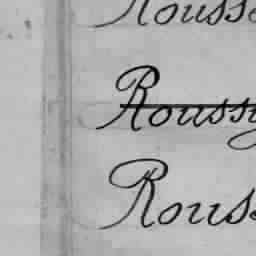 Rousse
Roussy
Rouss